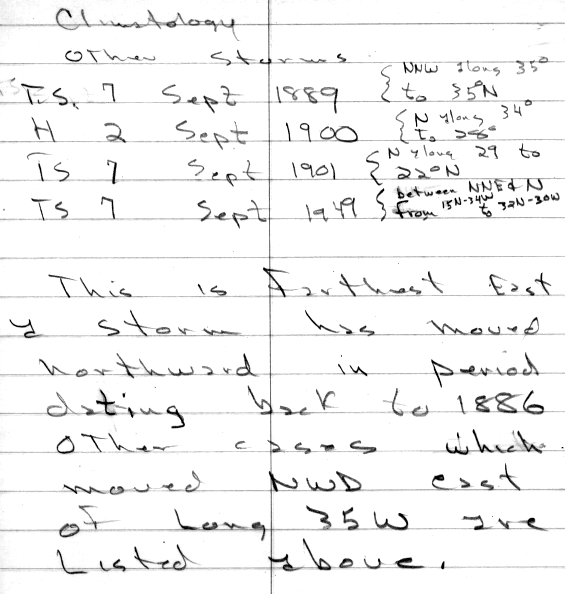 Climatology
Other Storms
T.S. 7 Sept 1889 { NNW along 35° to 35°N
H 2 Sept 1900 { N along 34° to 28°
TS 7 Sept 1901 { N along 29 to 22°N
TS 7 Sept 1949 { between NNE & N from 15N-34W to 32N-30W
This is Farthest East
a storm has moved
northward in period
dating back to 1886
Other cases which
moved NWD east
of Long 35W are
Listed above.